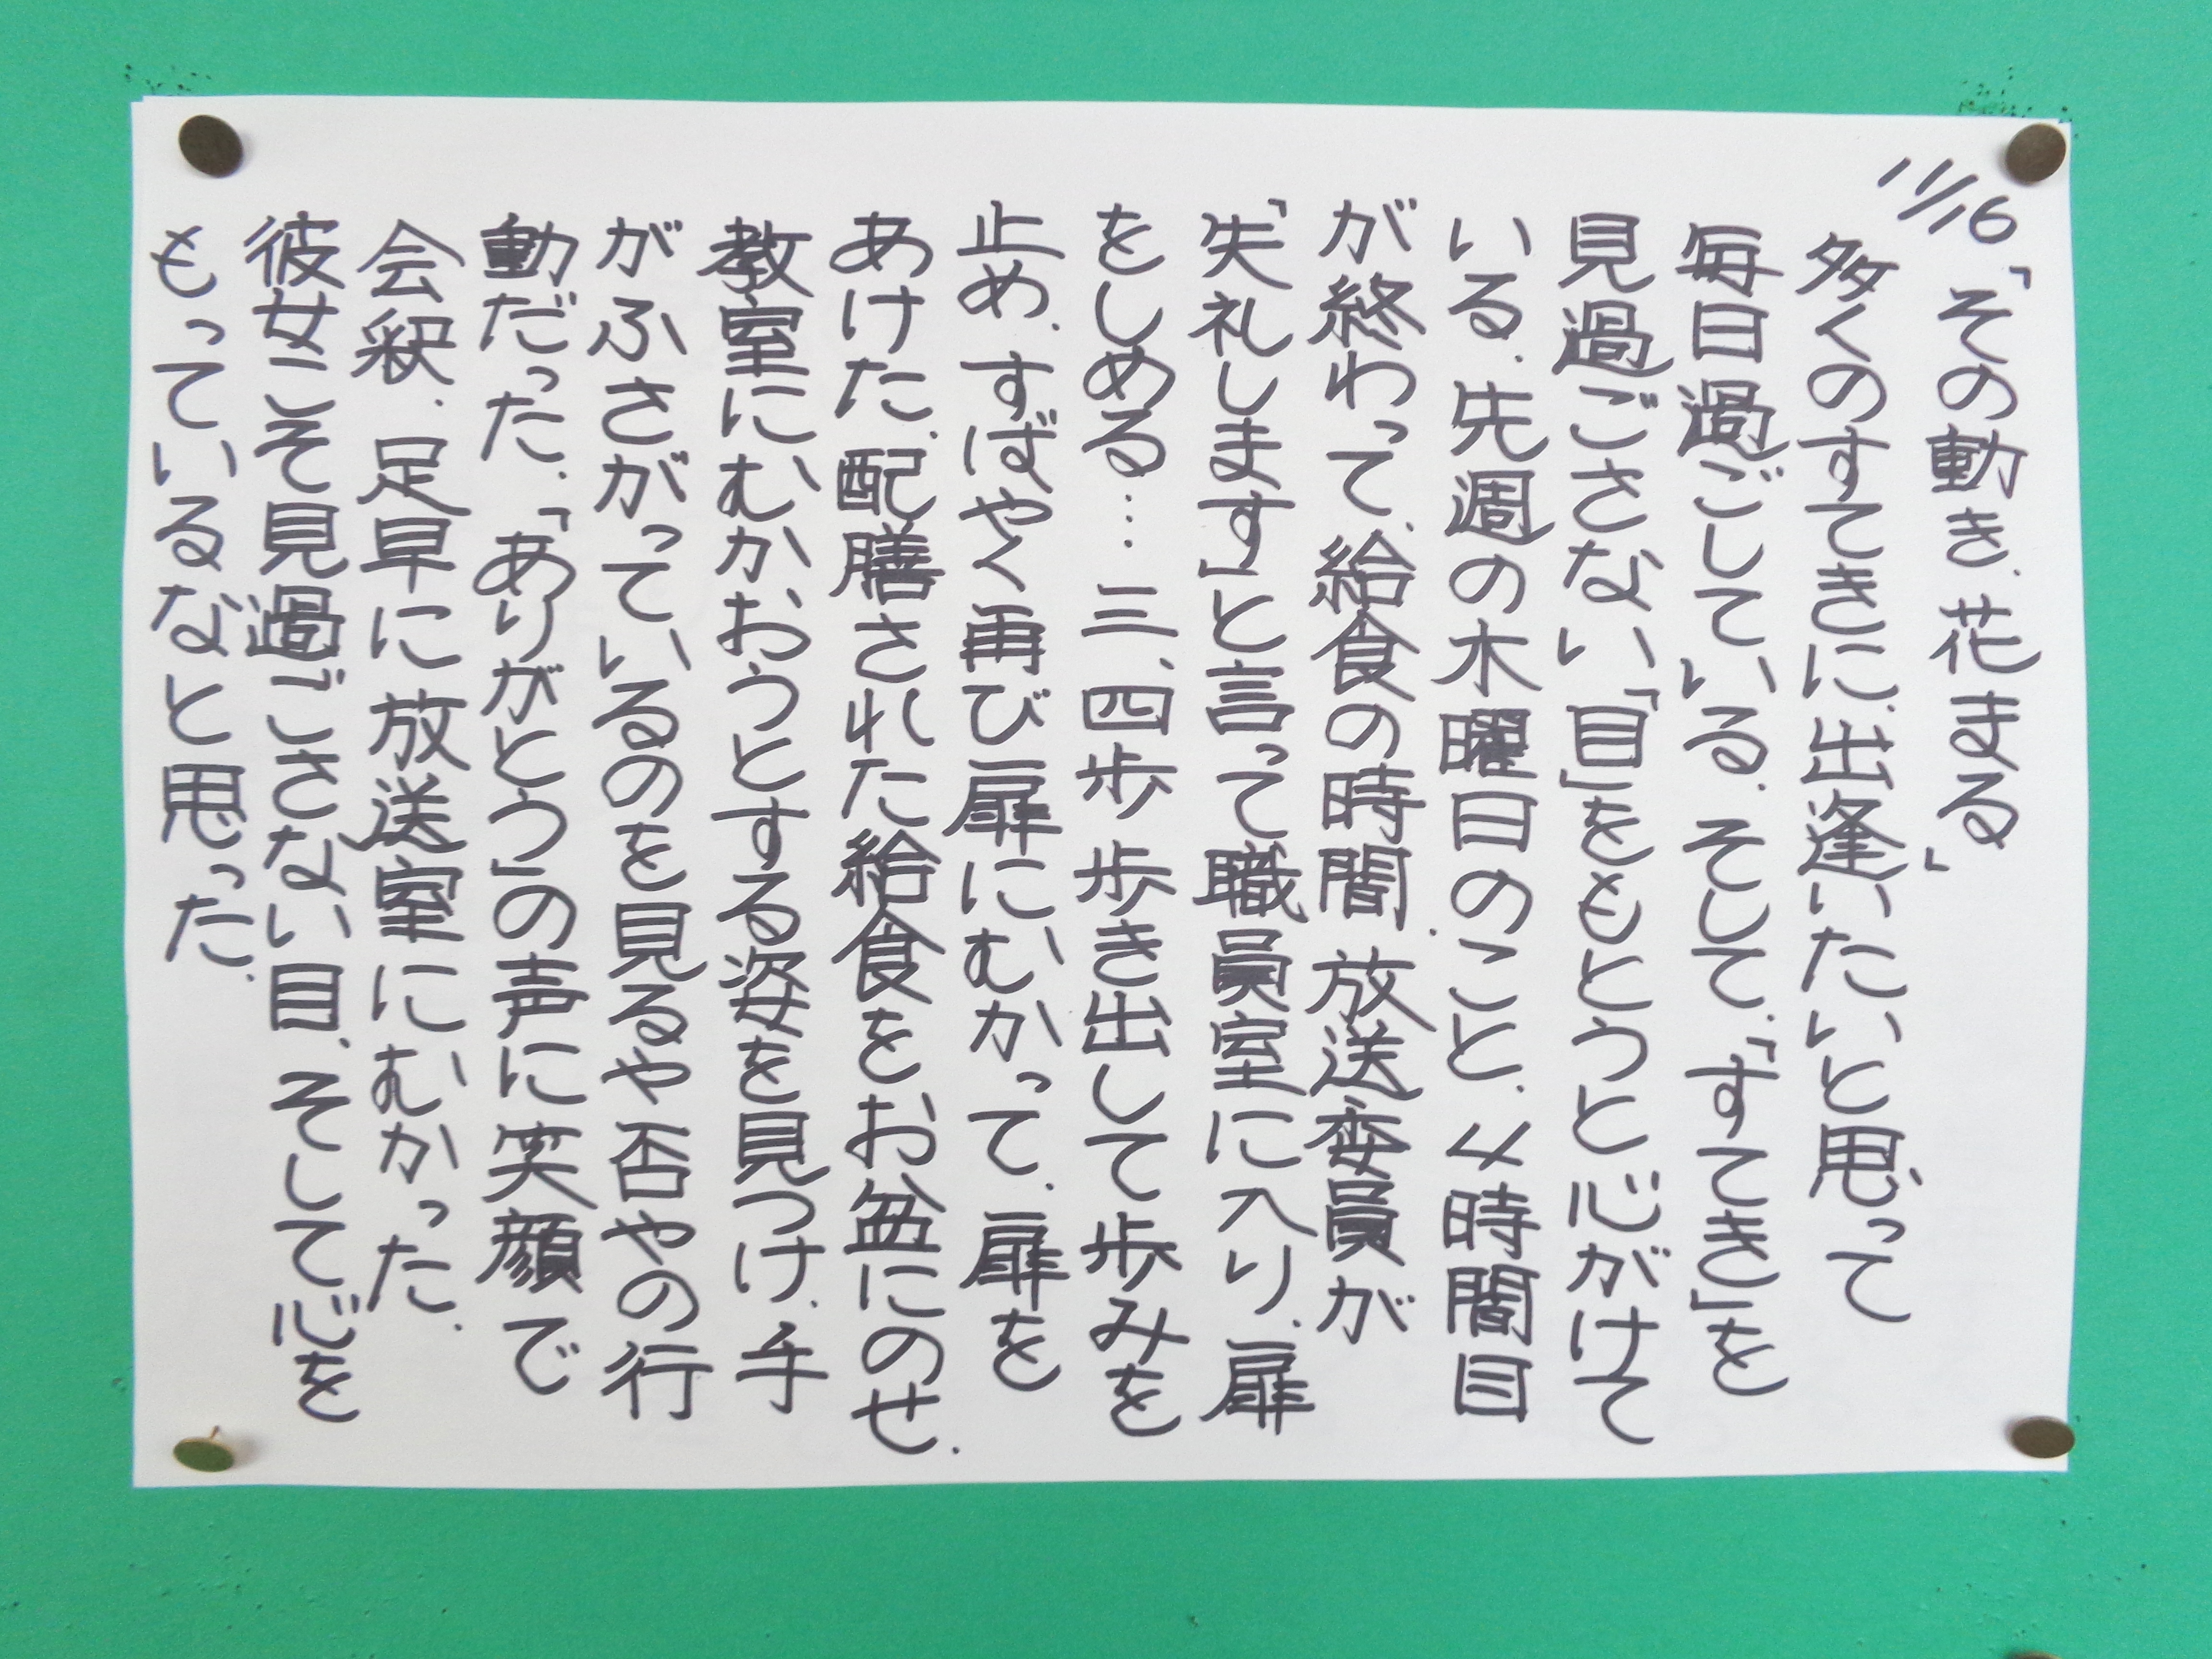 11/16「その動き、花まる」
多くのすてきに、出逢いたいと思って
毎日過ごしている。そして、「すてき」を
見過ごさない「目」をもとうと心がけて
いる。先週の木曜日のこと、4時間目
が終わって、給食の時間、放送委員が
「失礼します」と言って職員室に入り、扉
をしめる…三、四歩歩き出して歩みを
止め、すばやく再び扉にむかって、扉を
あけた。配膳された給食をお盆にのせ、
教室にむかおうとする姿を見つけ、手
がふさがっているのを見るや否やの行
動だった。「ありがとう」の声に笑顔で
会釈、足早に放送室にむかった。
彼女こそ見過ごさない目、そして心を
もっているなと思った。